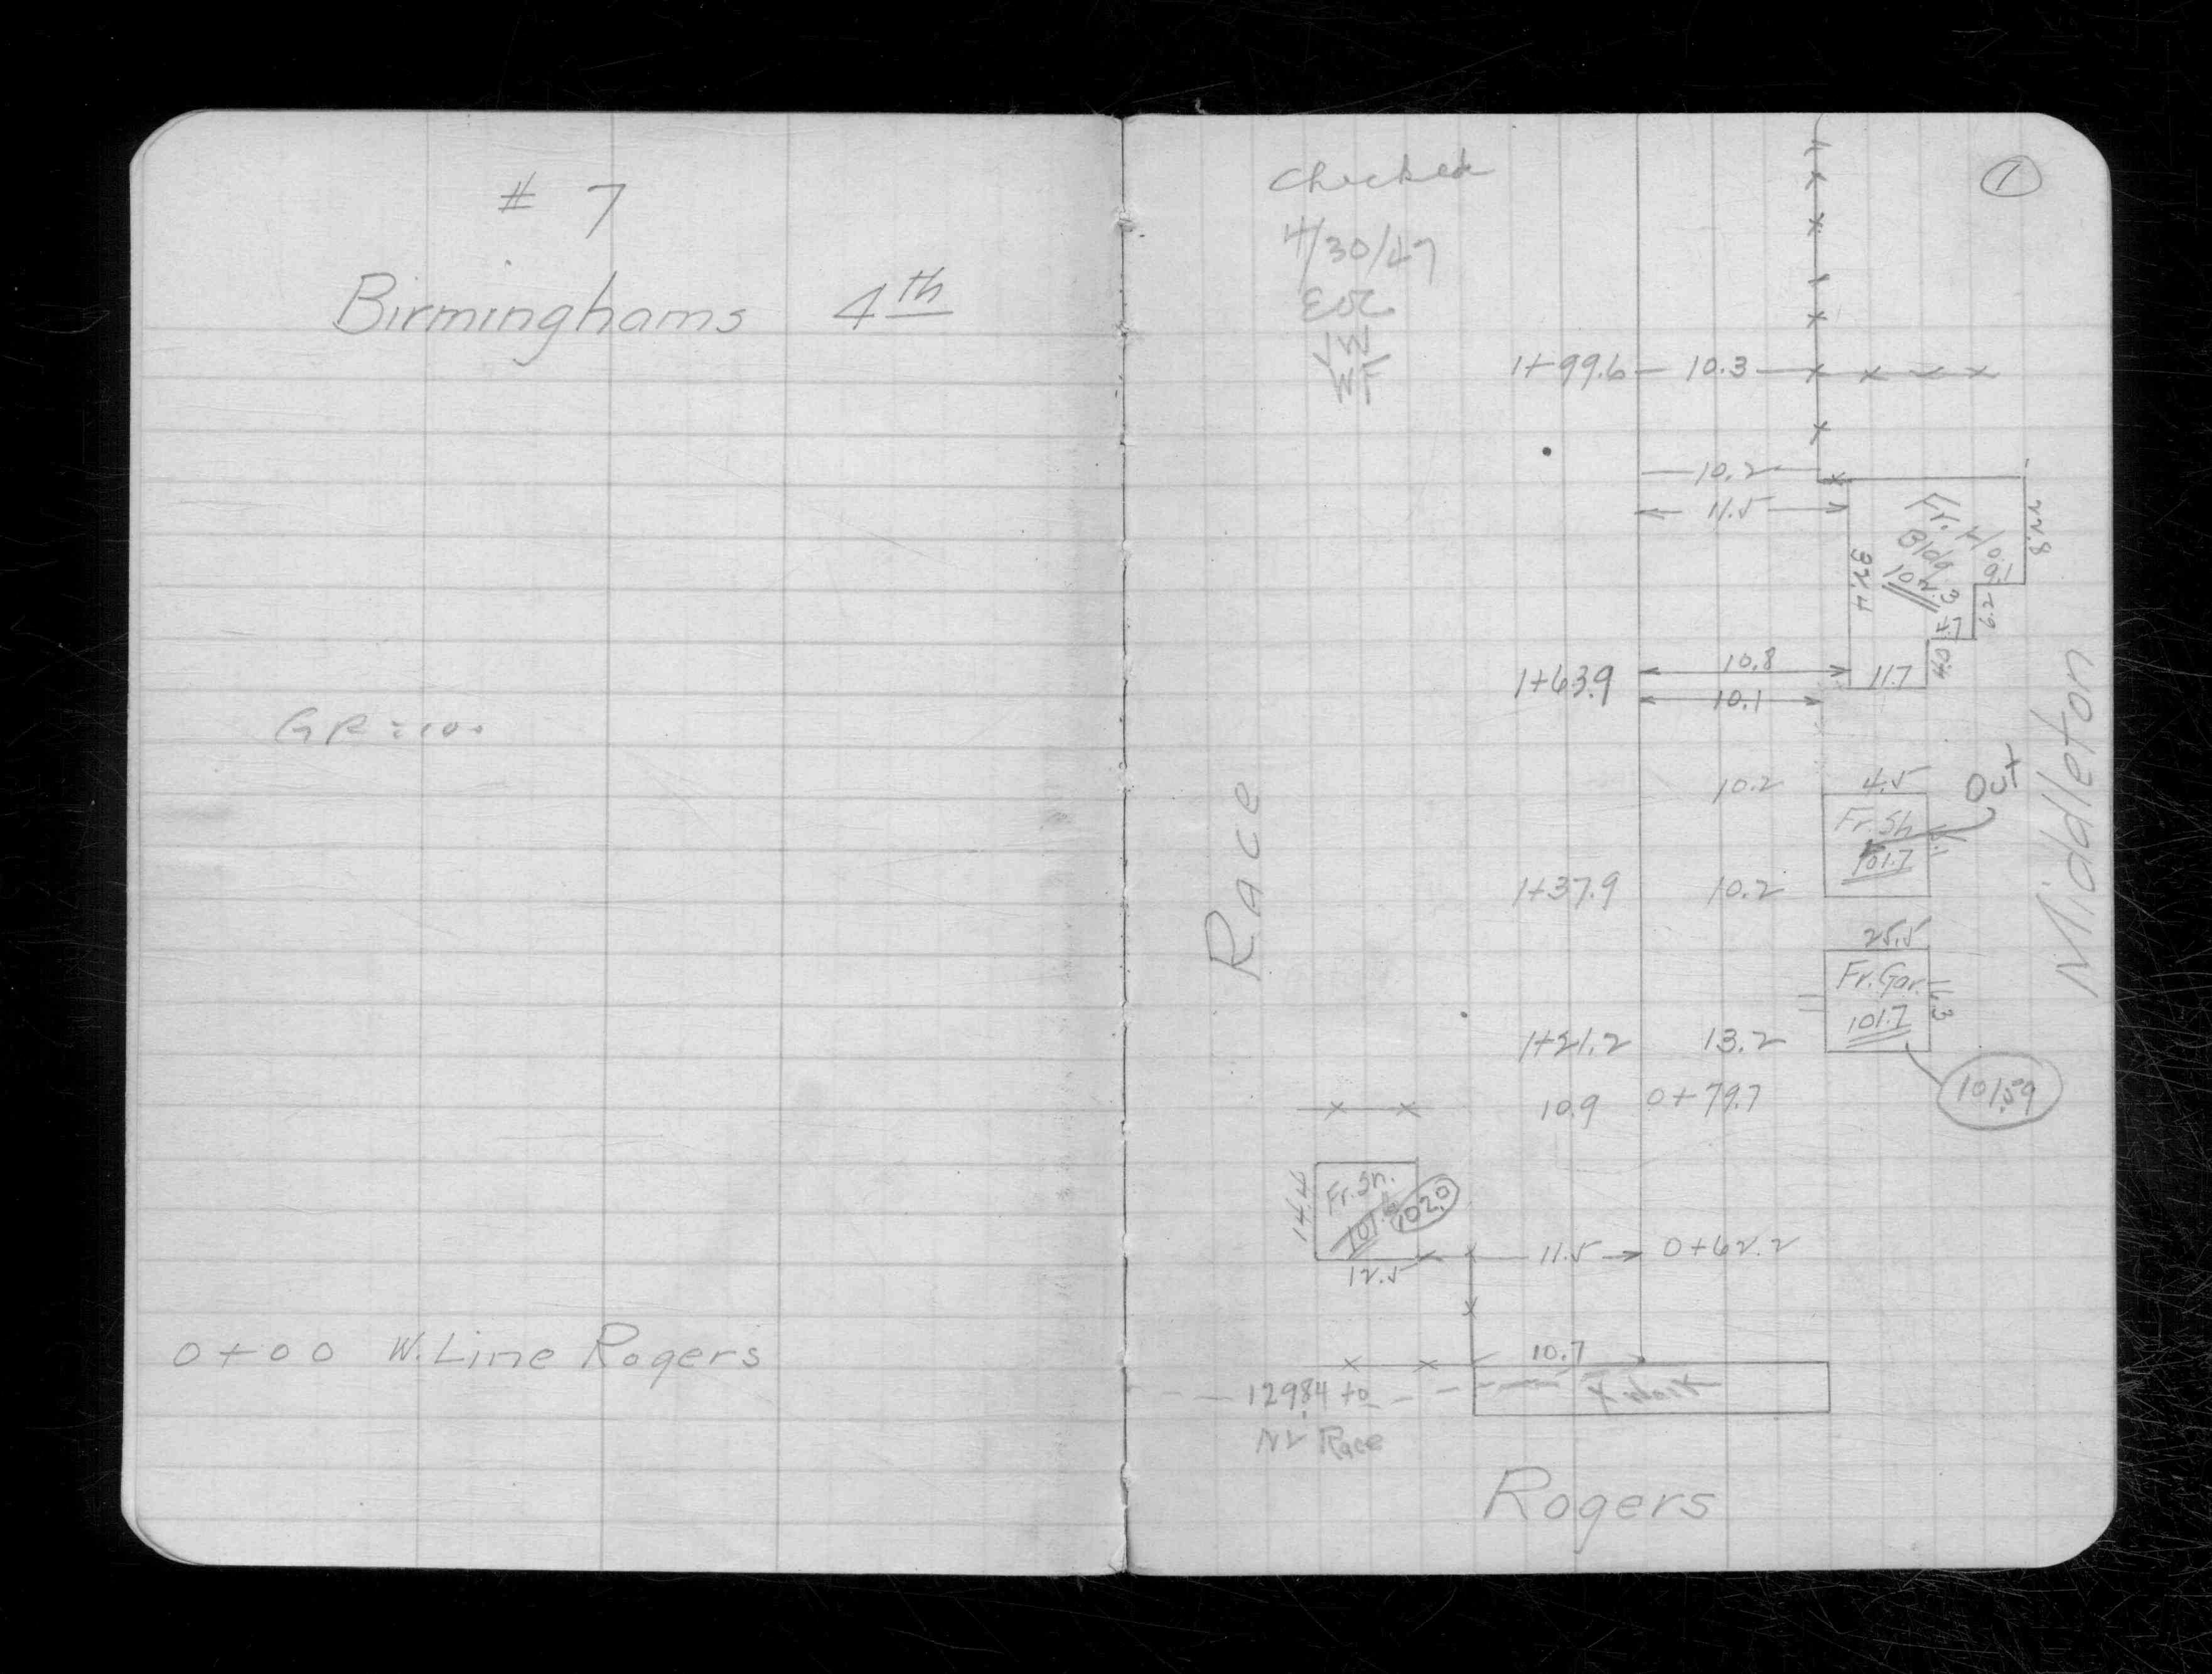 # 7
Birminghams 4th
GR = 100
0+00 W. Line Rogers
1
Checked
4/30/47
WF
1+99.6 10.3
10.2
11.5
Fr.
Bldg
102.3
22.8
9.1
6.2
32.4
4.0
11.7
10.8
1+63.9
10.1
Middleton
10.2 4.5
Out
Fr. Sh
101.7
1+37.9 10.2
Race
25.5
Fr. Gar.
101.7
1+21.2 13.2
101.59
10.9 0+79.7
Fr. Sh.
14.4
102.0
12.5
11.5 0+62.2
10.7
129.84 to
NL Race
Rogers